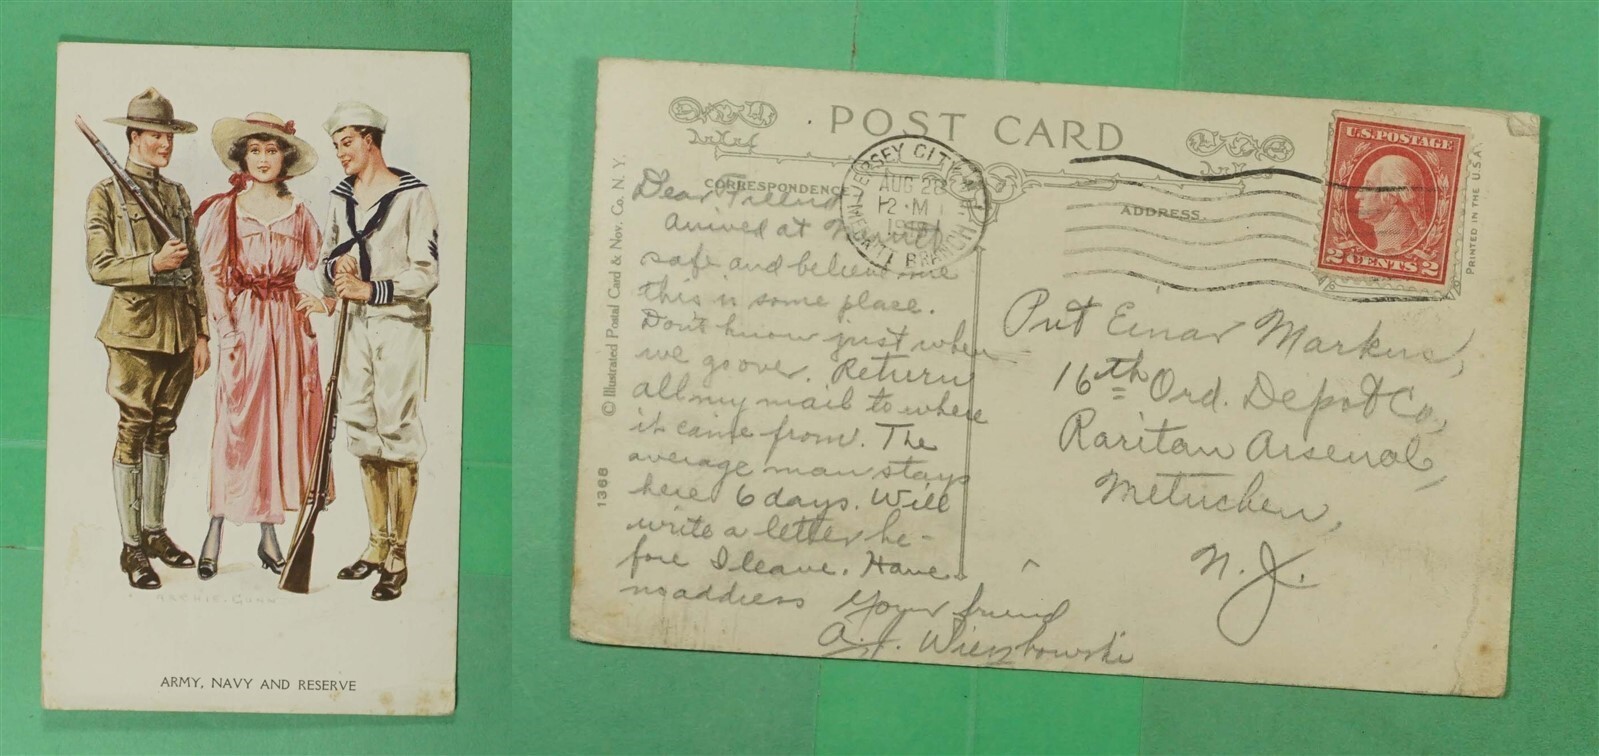 ARCHIE GUNN
ARMY, NAVY AND RESERVE
POST CARD
CORRESPONDENCE
ADDRESS.
JERSEY CITY
AUG 2
12 M
191
BRANCH
U.S. POSTAGE
2 CENTS 2
PRINTED IN THE U.S.A.
© Illustrated Postal Card & Nov. Co. N. Y.
1368
Dear Friend
Arrived at
safe and believe me
this is some place.
Don't know just when
we go over. Return
all my mail to where
it came from. The
average man stays
here 6 days. Will
write a letter be-
fore I leave. Have
no address Your friend
A. J. Wiezbowski
Pvt Einar Markus,
16th Ord. Depot Co.,
Raritan Arsenal,
Metuchen,
N. J.